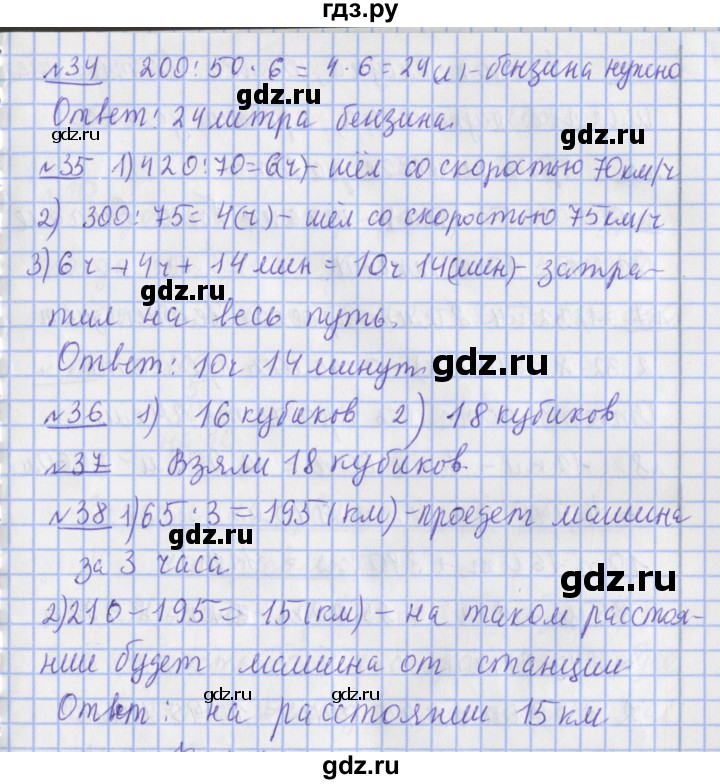 гдз.ру
№34 200:50·6=4·6=24(л)-бензина нужно
Ответ: 24 литра бензина.
gdz.ru
№35 1)420:70=6(ч)- шёл со скоростью 70км/ч
gdz.ru
2) 300:75=4(ч)- шёл со скоростью 75км/ч
3)6ч+4ч+14мин=10ч14(мин)- затра-
gdz.ru
тил на весь путь.
gdz.ru
Ответ: 10ч 14минут.
gdz.ru
№36 1) 16кубиков 2) 18кубиков
gdz.ru
№37 Взяли 18 кубиков.
№38 1)65·3=195(км)-проедет машина
gdz.ru
за 3 часа
gdz.ru
2)210-195=15(км)- на таком расстоя-
нии будет машина от станции
gdz.ru gdz.ru
Ответ: на расстоянии 15км
gdz.ru